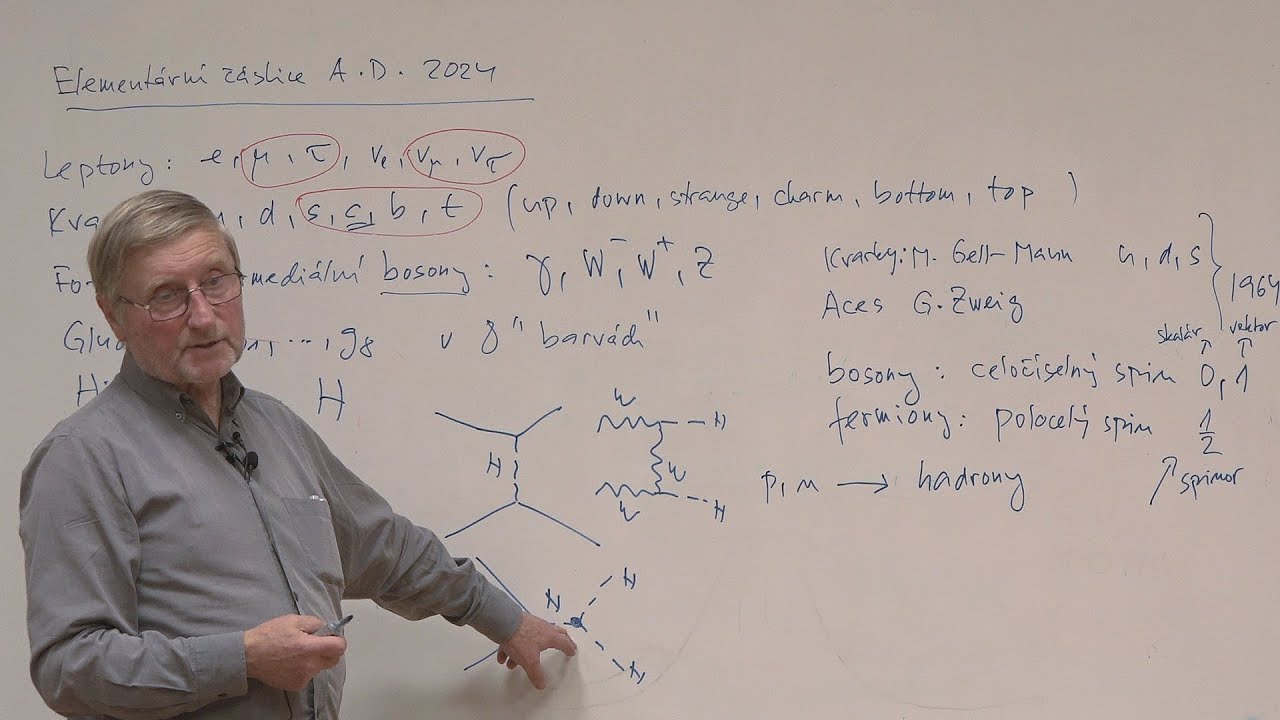 Elementární částice A.D. 2024
Leptony: e, μ, τ, νe, νμ, ντ
d, s, c, b, t (up, down, strange, charm, bottom, top)
mediální bosony: γ, W⁻, W⁺, Z
g8 v 8 "barvách"
H
Kvarky: M. Gell-Mann u, d, s
Aces G. Zweig
1964
skalár vektor
bosony: celočíselný spin 0, 1
fermiony: polocelý spin 1/2
p, n → hadrony
spinor
H
W
H
W
W
H
H
H
H